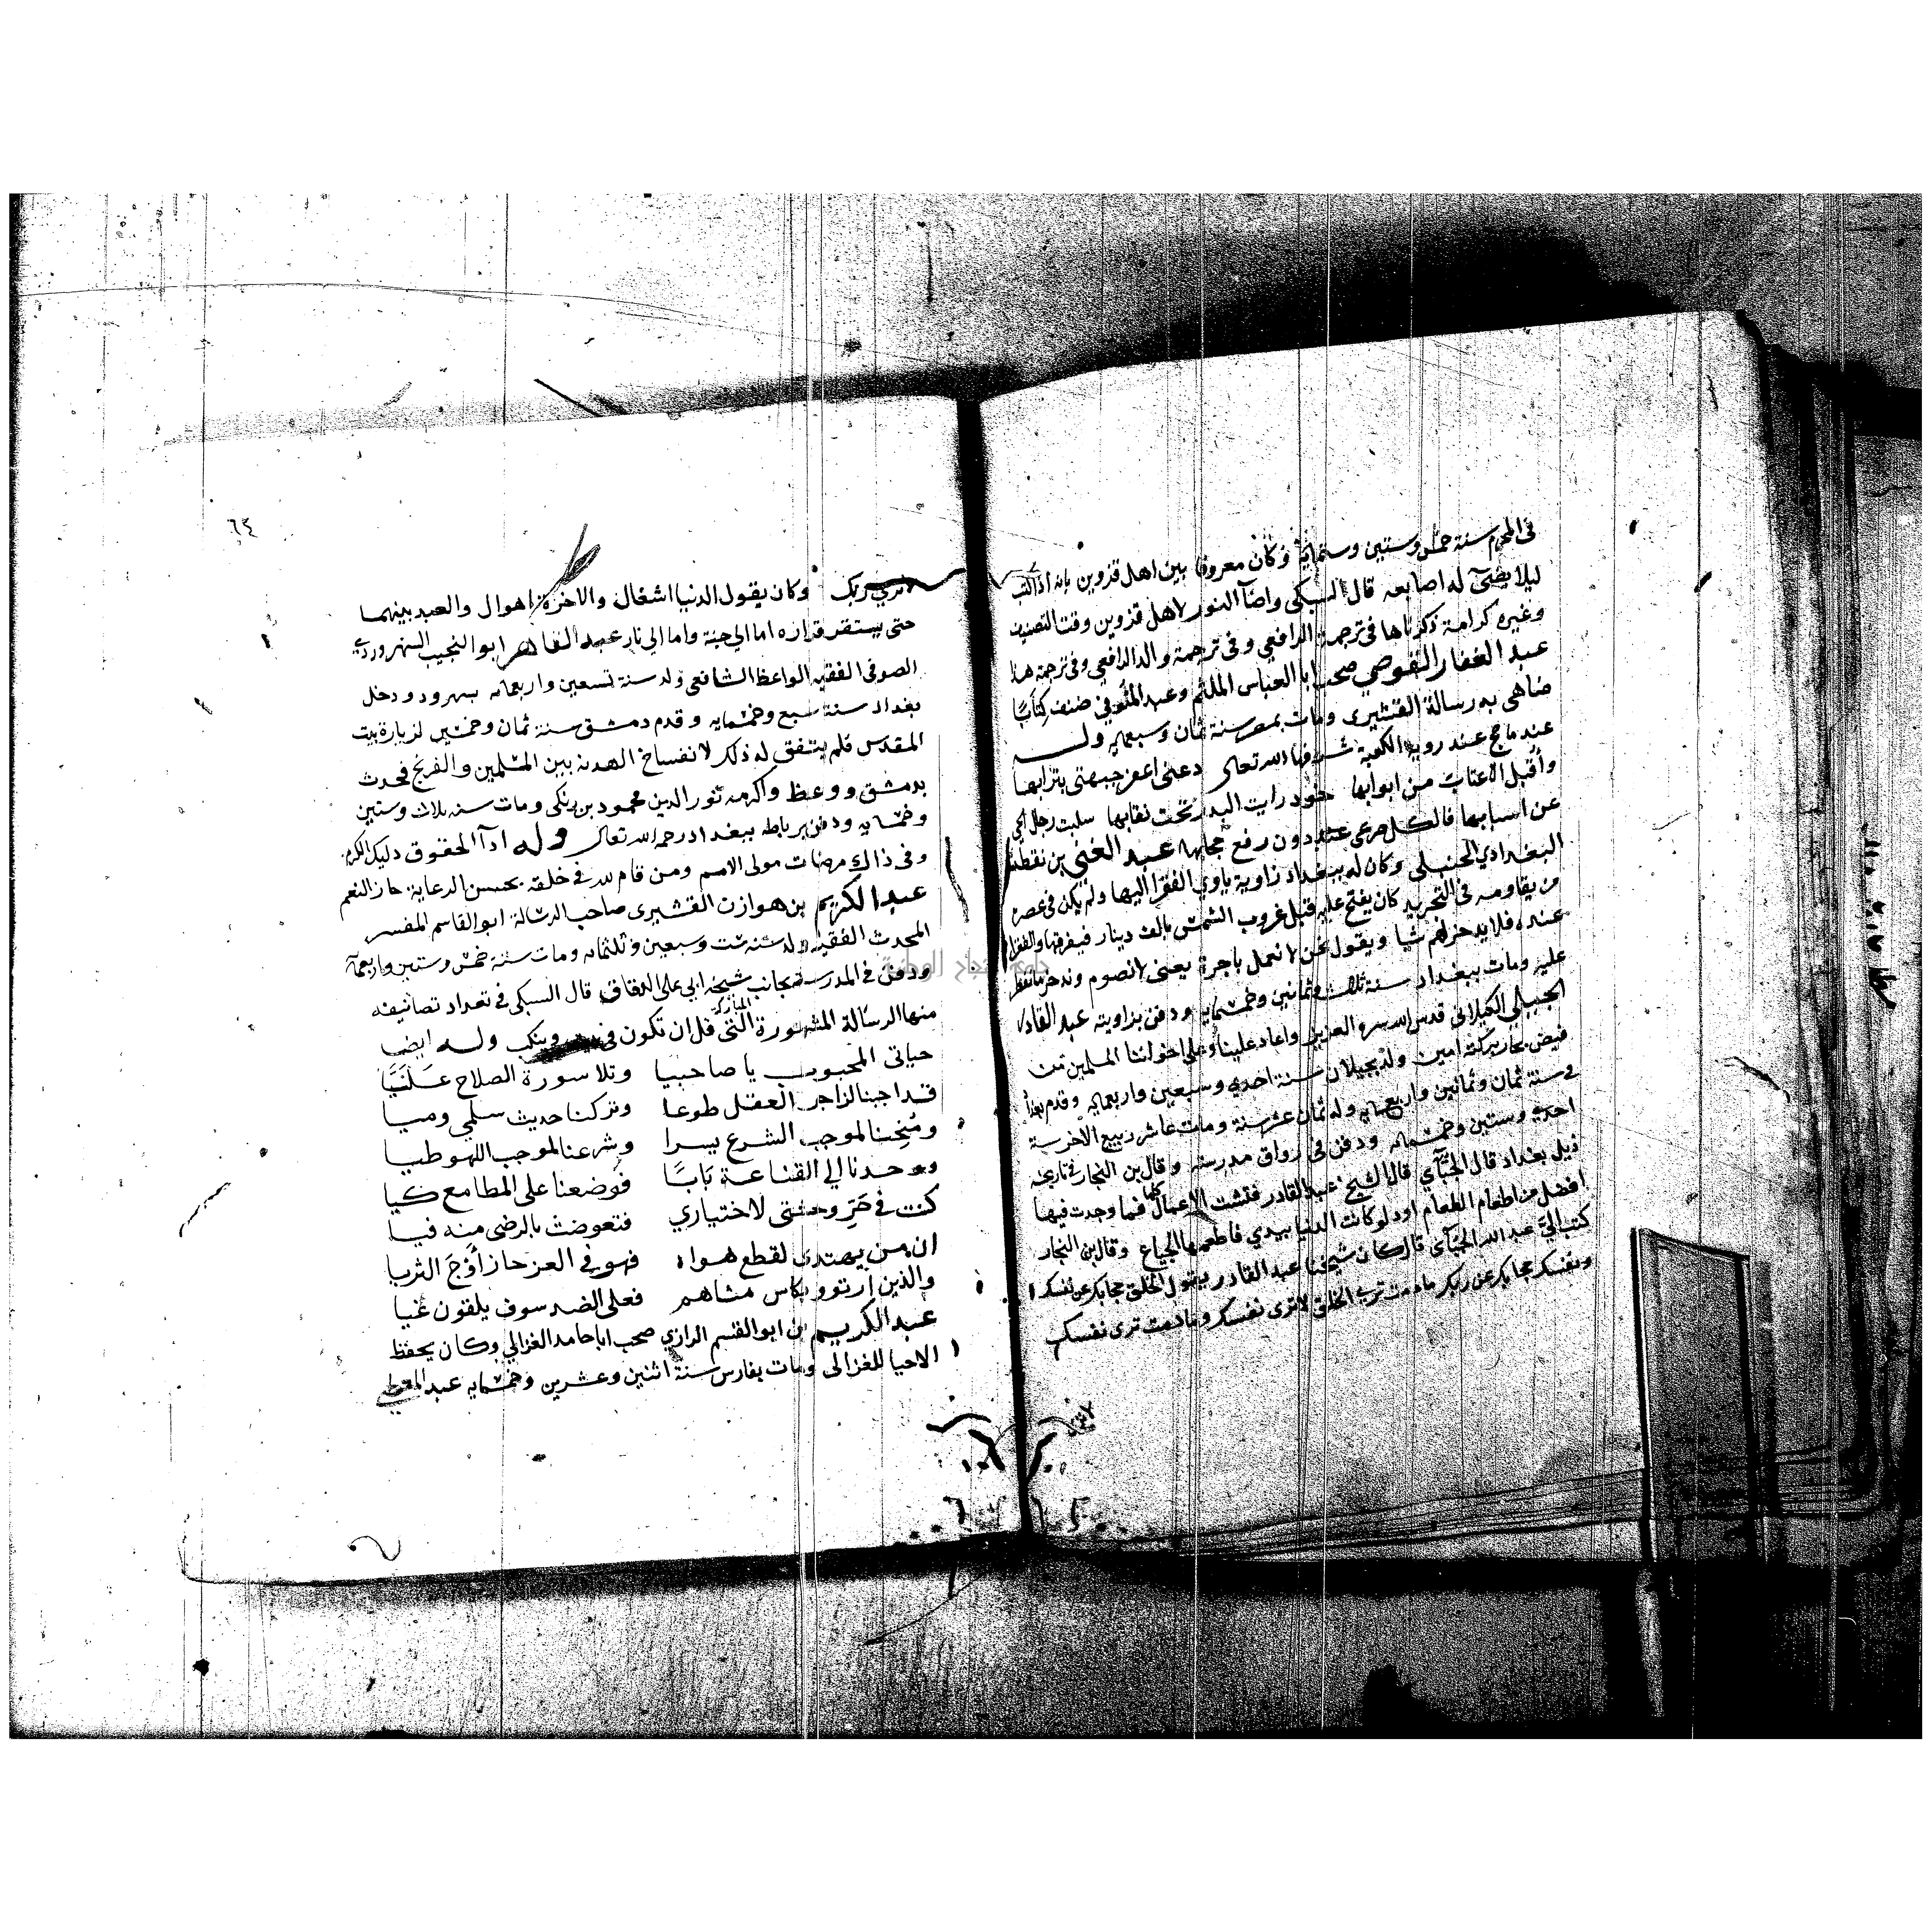 في المحرم سنة خمس وستين وستمايه وكان معروفا بين اهل قزوين بانه اذا كتب
ليلا يضيء له اصابعه قال السبكي واضآ النور لاهل قزوين وقت التصنيف
وغيره كرامة ذكرناها في ترجمة الرافعي وفي ترجمة والد الرافعي وفي ترجمة هذا
عبد الغفار القوصي صحب ابا العباس الملثم وعبد العزيز المنوفي صنف كتابًا
ضاهى به رسالة القشيري ومات بمصر سنة ثمان وسبعمايه وله
عند ما حج عند روية الكعبة شرفها الله تعالى دعني اعفر جبهتي بترابها
وأقبل الاعتاب من ابوابها خود رايت البدر تحت نقابها سلبت رجال الحي
عن اسبابها فالكل صرعى عنند دون رفع حجابها عبد الغني بن نقطة
البغدادي الحنبلي وكان له ببغداد زاوية ياوي الفقرا اليها ولم يكن في عصره
من يقاومه في التجريد كان يفتح عليه قبل غروب الشمس بالف دينار فيفرقها والفقرا
عنده فلا يدخر لهم شيا ويقول نحن لا نعمل باجرة يعني لا نصوم وندخر ما نفطر
عليه ومات ببغداد سنة ثلاث وثمانين وخمسمايه ودفن بزاويته عبد القادر
الجيلي الكيلاني قدس الله سره العزيز واعاد علينا وعلى اخواننا المسلمين من
فيض بحار بركته امين ولد بجيلان سنة احدي وسبعين واربعمايه وقدم بغداد
في سنة ثمان وثمانين واربعمايه وله ثمان عشر سنة ومات عاشر ربيع الاخر سنة
احدي وستين وخمسمايه ودفن في رواق مدرسته وقال بن النجار في تاريخه
ذيل بغداد قال الجُبّآي قال الشيخ عبد القادر فتشت الاعمال كلها فما وجدت فيها
افضل من اطعام الطعام اود لو كانت الدنيا بيدي فاطعمها الجياع وقال بن النجار
كتب اليَّ عبد الله الجبّآي قال كان شيخنا عبد القادر يقول الخلق حجابك عن نفسك
ونفسك حجابك عن ربك ما دمت ترى الخلق لا ترى نفسك وما دمت ترى نفسك
٦٤
لا تري ربك وكان يقول الدنيا اشغال والاخرة اهوال والعبد بينهما
حتى يستقر قراره اما الي جنة واما الي نار عبد القاهر ابو النجيب السهروردي
الصوفي الفقيه الواعظ الشافعي ولد سنة تسعين واربعمايه بسهرورد ودخل
بغداد سنة سبع وخمسمايه وقدم دمشق سنة ثمان وخمسين لزيارة بيت
المقدس فلم يتفق له ذلك لانفساخ الهدنة بين المسلمين والفرنج فحدث
بدمشق ووعظ واكرمه نور الدين محمود بن زنكي ومات سنه ثلاث وستين
وخمسمايه ودفن برباطه ببغداد رحمه الله تعالى وله ادآ الحقوق دليل الكرم
وفي ذاك مرضات مولى الامم ومن قام لله في خلقه بحسن الرعاية حاز النعم
عبد الكريم بن هوازن القشيري صاحب الرسالة ابو القاسم المفسر
المحدث الفقيه ولد سنة ست وسبعين وثلثمايه ومات سنة خمس وستين واربعمايه
ودفن في المدرسة بجانب شيخه ابي علي الدقاق قال السبكي في تعداد تصانيفه
منها الرسالة المشهورة المباركة التي قل ان تكون في بيت وينكب وله ايضا
حياتي المحبوب يا صاحبيا وتلا سورة الصلاح عَلَيَّا
قد اجبنا لزاجر العقل طوعا وتركنا حديث سلمي وميا
ومُنِحنا لموجب الشرع يسرا وشرعنا لموجب اللهو طيا
ووجدنا الي القناعة بَابًا فوضعنا على المطامع كيا
كنت في حَرِّ وحشتي لاختياري فتعوضت بالرضى منه فيا
ان من يهتدي لقطع هواه فهو في العز حاز أوْجَ الثريا
والذين ارتووا بكاس مشاهم فعلى الضد سوف يلقون غيا
عبد الكريم بن ابو القسم الرازي صحب ابا حامد الغزالي وكان يحفظ
الاحيا للغزالى ومات بفارس سنة اثنين وعشرين وخمسمايه عبد المعطي